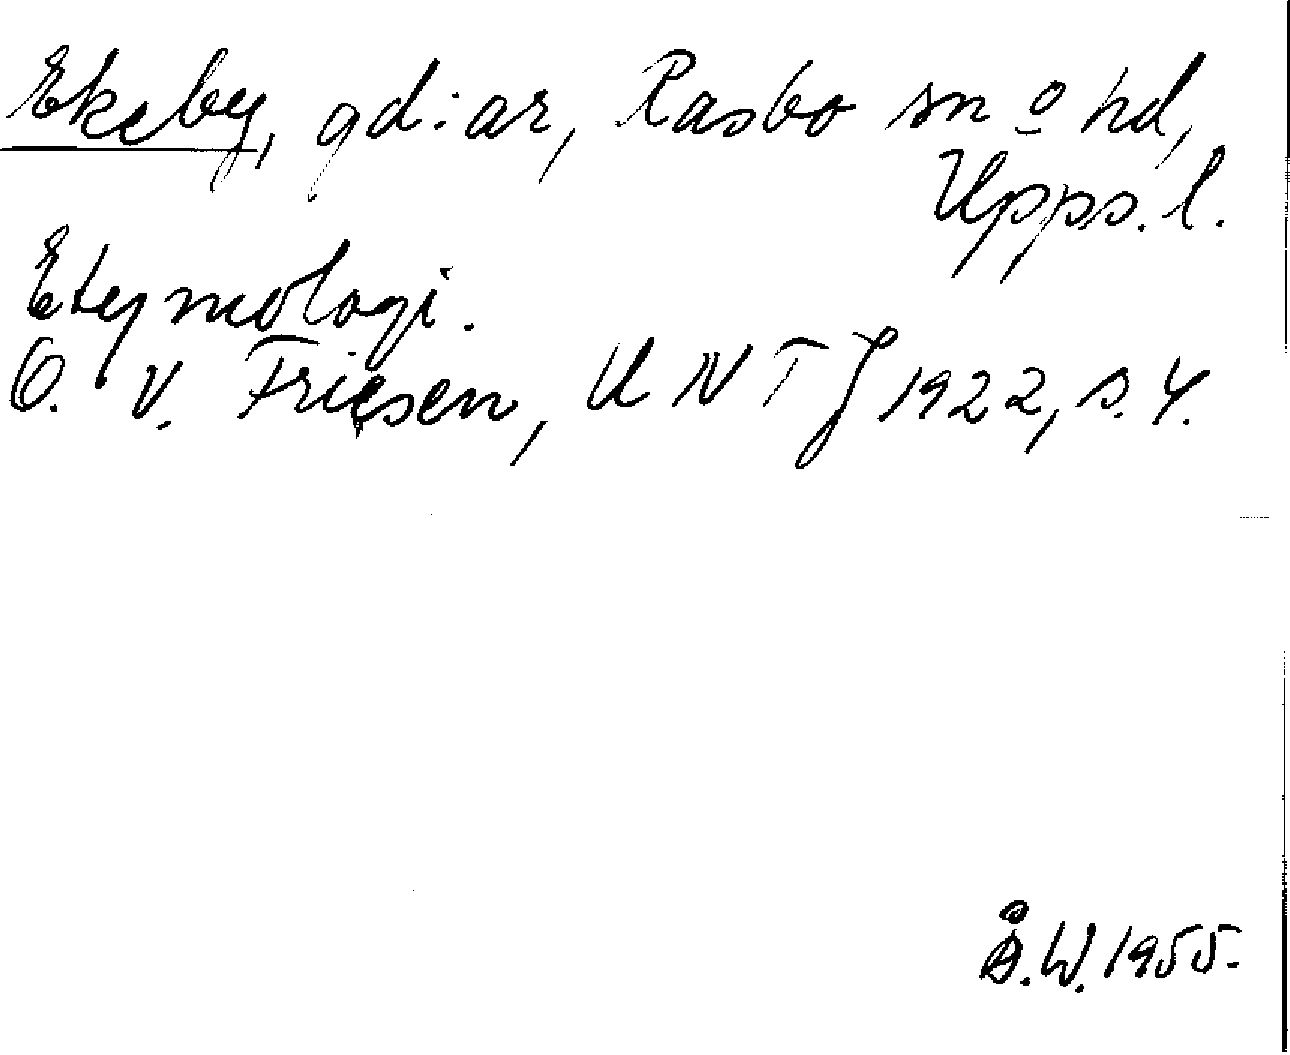 Ekeby, gd:ar, Rasbo sn o hd,
Upps. l.
Etymologi.
O. v. Friesen, UNTJ 1922, s. 4.
Å.W. 1955.